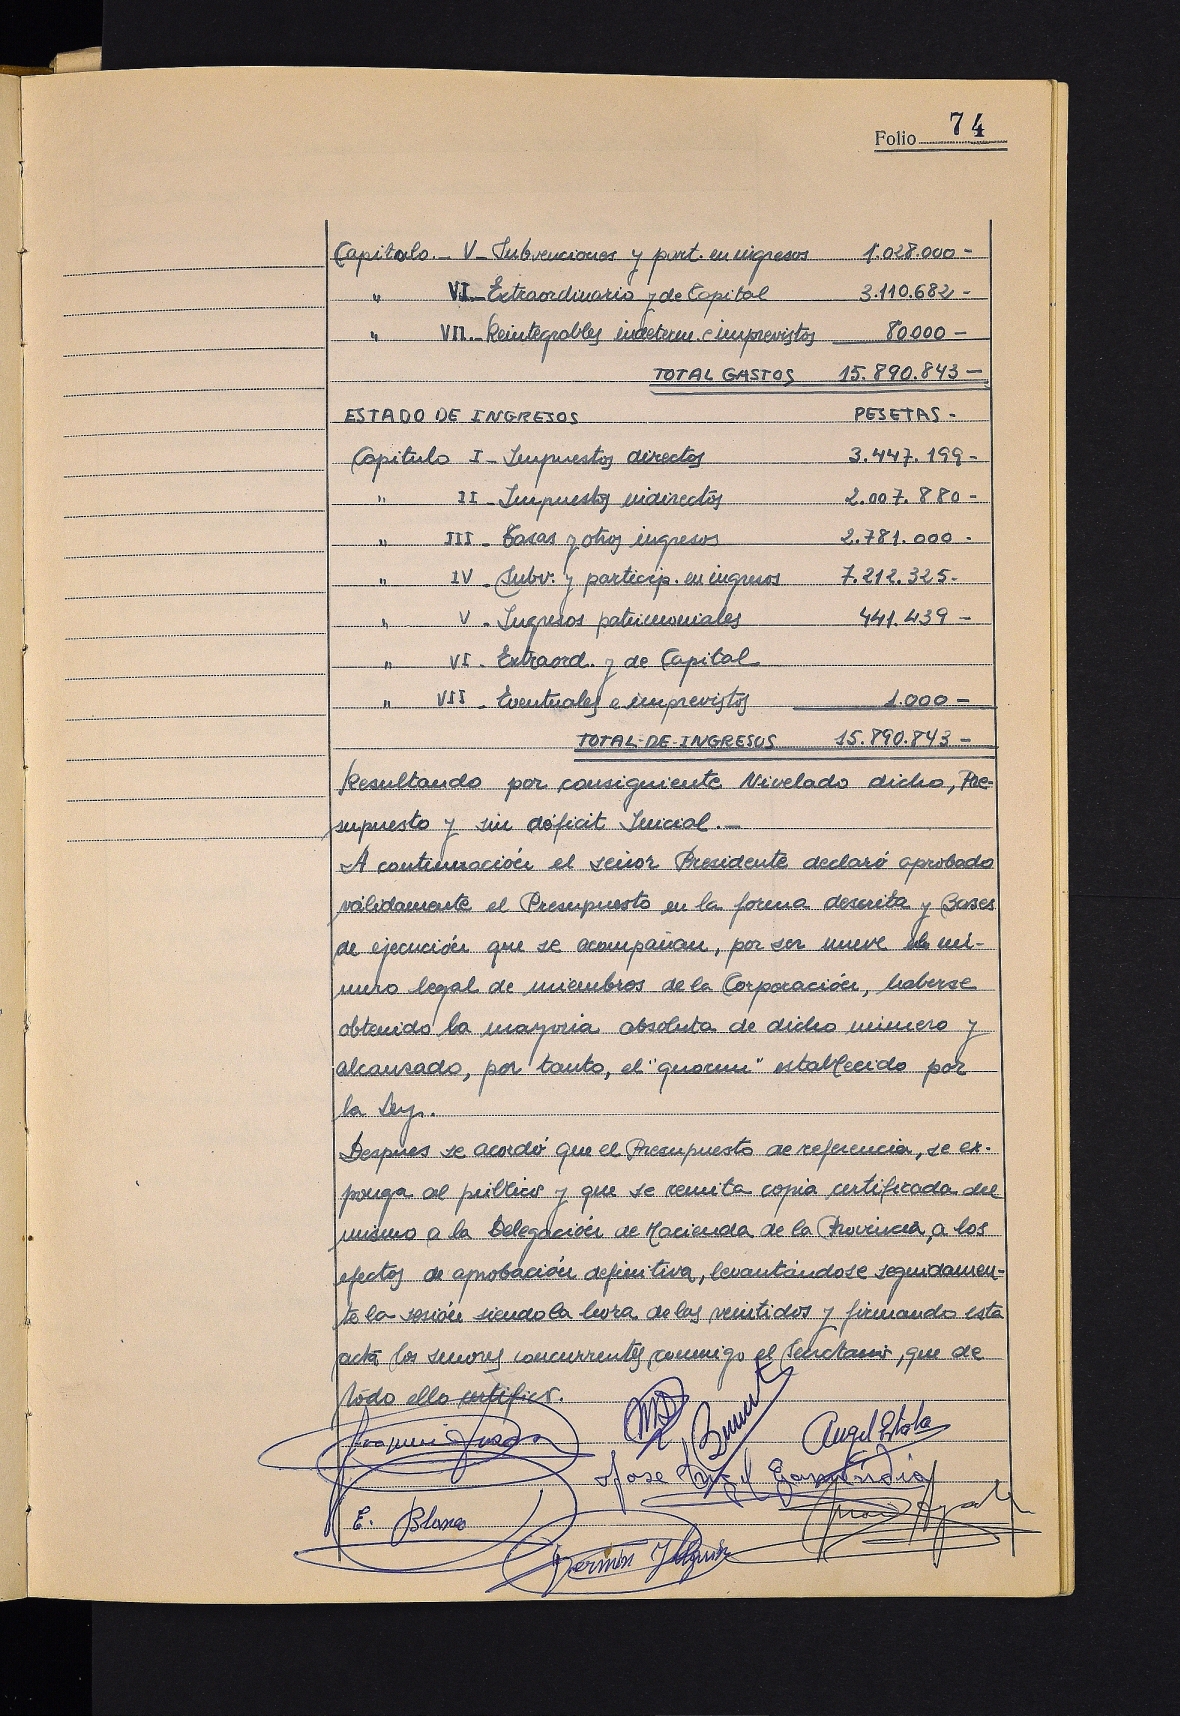 Folio 74
Capitulo.- V- Subvenciones y part. en ingresos 1.028.000-
" VI- Extraordinario y de Capital 3.110.682-
" VII.- Reintegrables indeterm. e imprevistos 80.000-
TOTAL GASTOS 15.890.843-
ESTADO DE INGRESOS PESETAS-
Capitulo I- Impuestos directos 3.447.199-
" II- Impuestos indirectos 2.007.880-
" III- Tasas y otros ingresos 2.781.000-
" IV- Subv. y particip. en ingresos 7.212.325-
" V- Ingresos patrimoniales 441.439-
" VI- Extraord. y de Capital
" VII- Eventuales e imprevistos 1.000-
TOTAL-DE-INGRESOS 15.890.843-
Resultando por consiguiente Nivelado dicho, Pre-
supuesto y sin déficit Inicial.-
A continuación el señor Presidente declaró aprobado
válidamente el Presupuesto en la forma descrita y Bases
de ejecución que se acompañan, por ser nueve el nú-
mero legal de miembros de la Corporación, haberse
obtenido la mayoria absoluta de dicho número y
alcanzado, por tanto, el "quorum" establecido por
la Ley.
Despues se acordó que el Presupuesto de referencia, se ex-
ponga al público y que se remita copia certificada del
mismo a la Delegación de Hacienda de la Provincia, a los
efectos de aprobación definitiva, levantándose seguidamen-
te la sesión siendo la hora de las veintidos y firmando esta
acta los señores concurrentes conmigo el Secretario, que de
todo ello certifico.
Angel
Jose Angel
E. Blanco
Germán